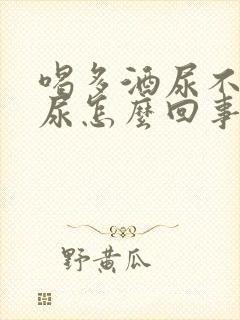 喝多酒尿不
尿怎麼回事
野黄瓜